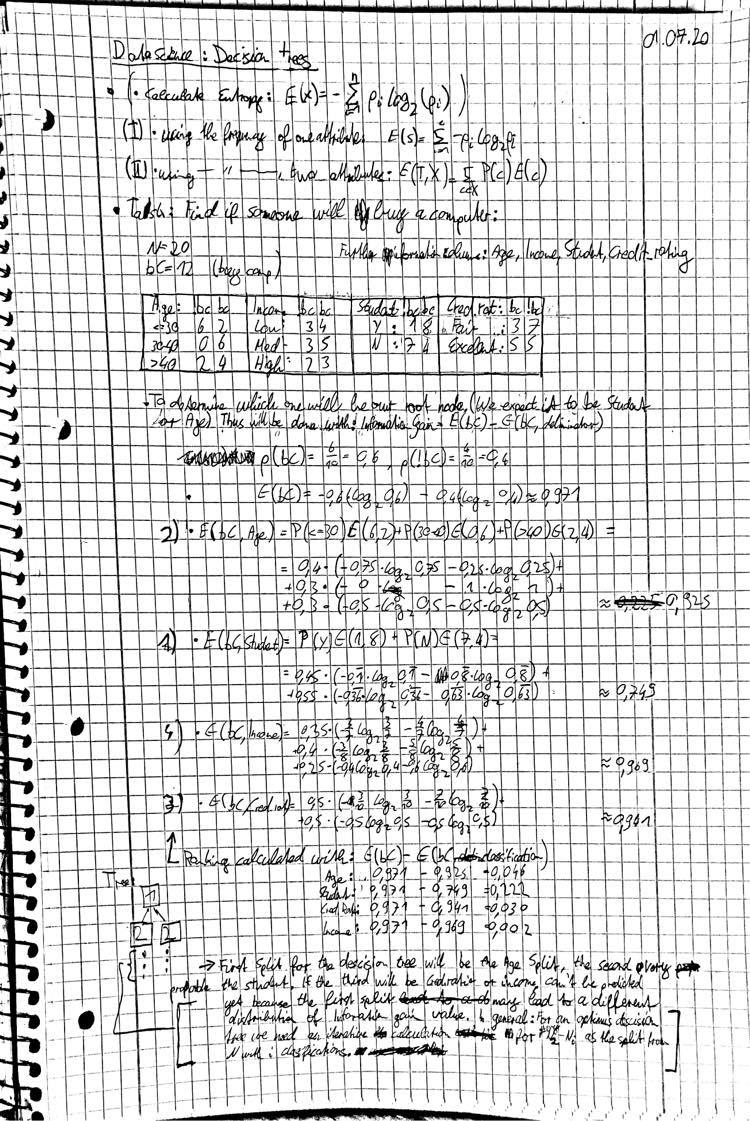 01.07.20
Datascience: Decision trees
• (• Calculate Entropy: E(X) = - Σ pi log2(pi))
(I) • using the frequency of one attribute: E(S) = Σ -pi log2 pi
(II) • using — " — two attributes: E(T,X) = Σ P(c) E(c)
• Task: Find if someone will buy a computer:
N=20
bC=12 (buys comp) Further information column: Age, Income, Student, Credit_rating
Age: !bc bc Incom. !bc bc Student !bc bc Cred. rat: bc !bc
<=30 6 2 Low: 3 4 Y : 1 8 Fair : 3 7
30-40 0 6 Med- 3 5 N : 7 4 Excelent: 5 5
>40 2 4 High: 2 3
• To determine which one will be our root node, (We expect it to be Student
or Age) Thus will be done with: Information Gain = E(bC) - E(bC, )
p(bC) = 6/10 = 0,6 , p(!bC) = 4/10 = 0,4
• E(bC) = -0,6(log2 0,6) - 0,4(log2 0,4) ≈ 0,971
2) • E(bC, Age) = P(<=30)E(6,2)+P(30-40)E(0,6)+P(>40)E(2,4) =
= 0,4·(-0,75·log2 0,75 - 0,25·log2 0,25)+
+0,3·(-0 - 1·log2 1)+
+0,3·(-0,5·log2 0,5 - 0,5·log2 0,5) ≈ 0,925
1) • E(bC, Student) = P(Y)E(1,8) + P(N)E(7,4) =
= 0,45·(-0,1·log2 0,1 - 0,8·log2 0,8) +
+0,55·(-0,36·log2 0,36 - 0,63·log2 0,63) ≈ 0,749
4) • E(bC, Income) = 0,35·(-3/7 log2 3/7 - 4/7 log2 4/7)+
+0,4·(-3/8 log2 3/8 - 5/8 log2 5/8) +
+0,25·(-0,4 log2 0,4 - 0,6 log2 0,6) ≈ 0,969
3) • E(bC, Cred.rat) = 0,5·(-3/10 log2 3/10 - 7/10 log2 7/10)+
+0,5·(-0,5 log2 0,5 - 0,5 log2 0,5) ≈ 0,941
Ranking calculated with: E(bC) - E(bC, classification)
Age: 0,971 - 0,925 = 0,046
Student: 0,971 - 0,749 = 0,222
Cred Rat: 0,971 - 0,941 = 0,030
Income: 0,971 - 0,969 = 0,002
Tree:
1
2 2
→ First Split for the descision tree will be the Age Split, the second very
propable the student. If the third will be Creditratin or income can't be predicted
yet because the first split may lead to a different
distribution of Information gain value. general: For an optimus descision
tree we need an iterative calculation for as the split from
N with i clasfications.